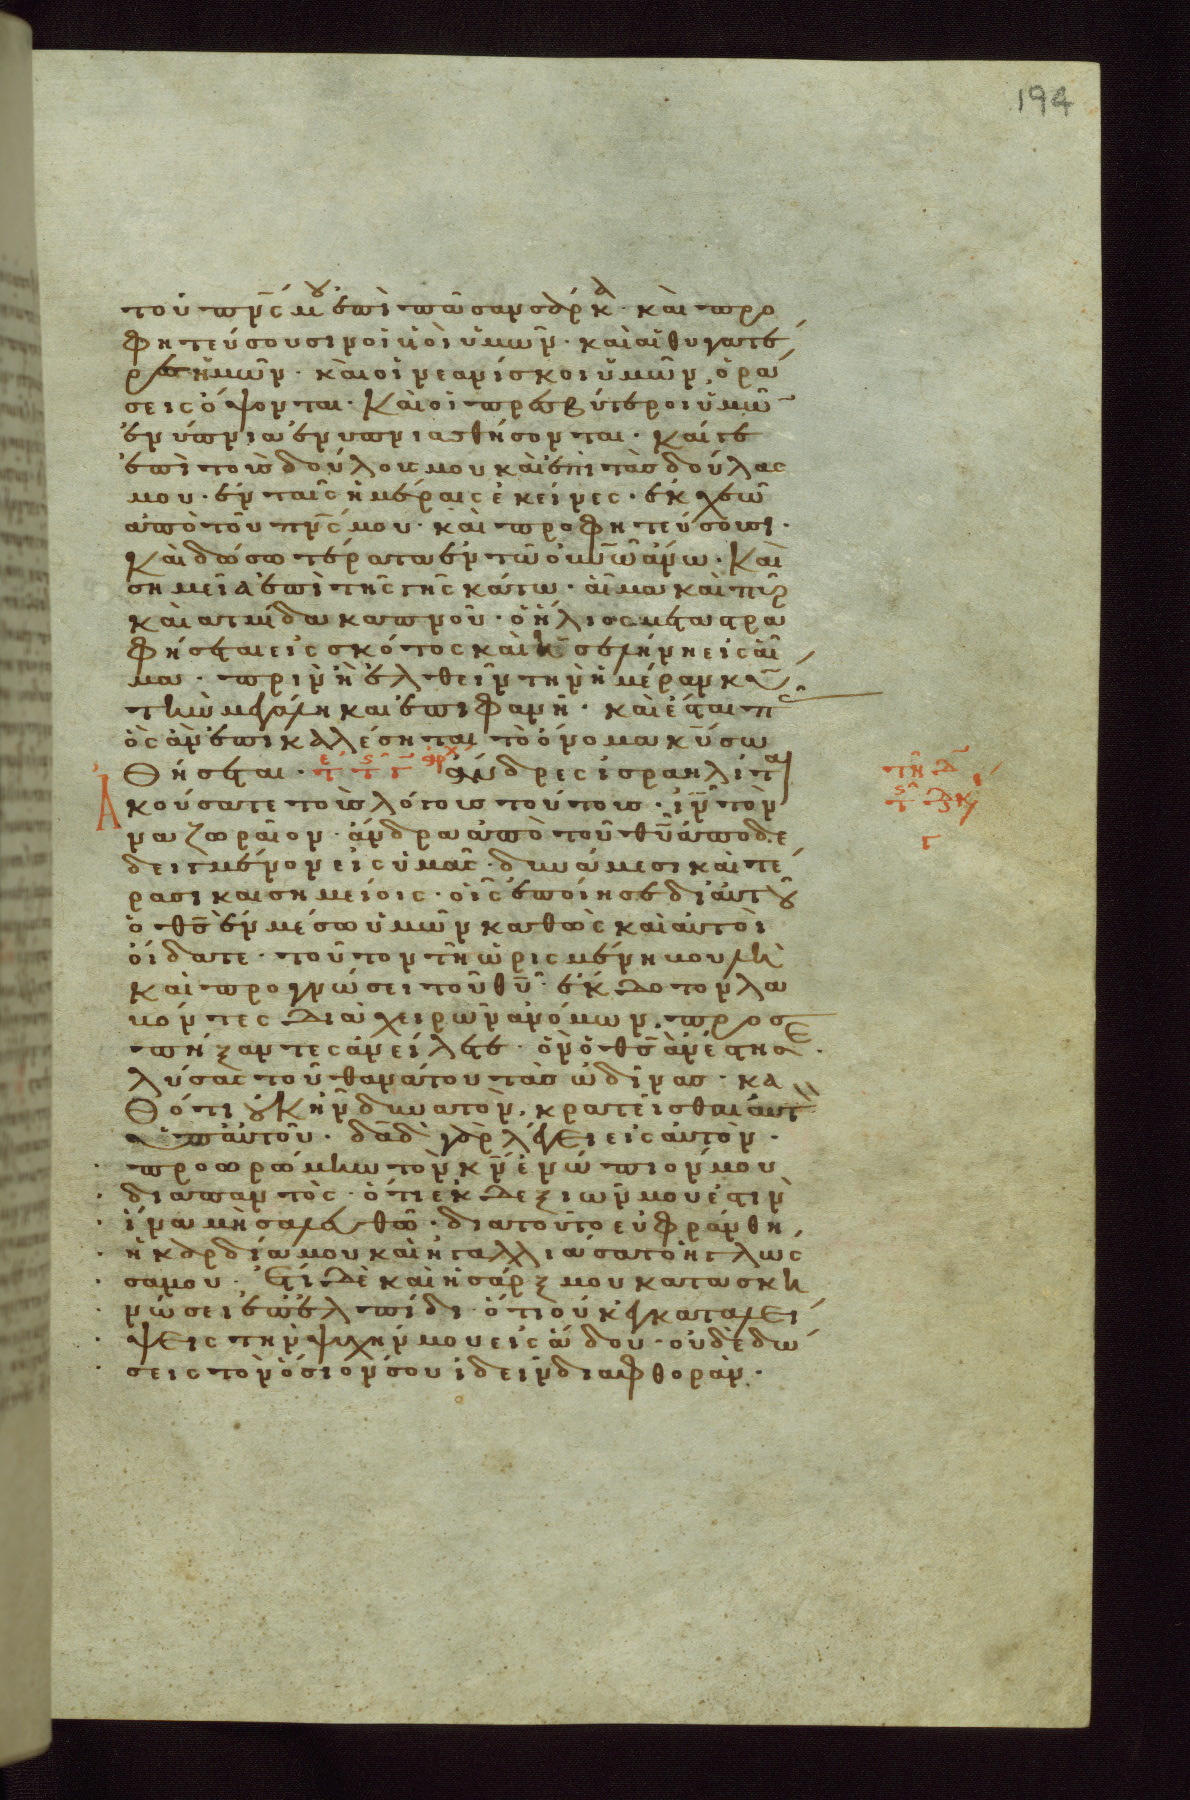 194
τοῦ πν̅ς μου ἐπὶ πᾶσαν σάρκα· καὶ προ
φητεύσουσιν οἱ υἱοὶ ὑμῶν· καὶ αἱ θυγατέ
ρες ὑμῶν· καὶ οἱ νεανίσκοι ὑμῶν ὁρά
σεις ὄψονται· Καὶ οἱ πρεσβύτεροι ὑμῶ
ἐνύπνια ἐνυπνιασθήσονται· καί γε
ἐπὶ τοὺς δούλους μου καὶ ἐπὶ τὰς δούλας
μου· ἐν ταῖς ἡμέραις ἐκείνες· ἐκχεῶ
ἀπὸ τοῦ πν̅ς μου· καὶ προφητεύσουσι·
Καὶ δώσω τέρατα ἐν τῶ οὐνῶ ἄνω· Καὶ
σημεῖα ἐπὶ τῆς γῆς κάτω· αἷμα καὶ πῦρ
καὶ ἀτμίδα καπνοῦ· ὁ ἥλιος μεταστρα
φήσεται εἰς σκότος καὶ ἡ σελήνη εἰς αἷ
μα· πρὶν ἢ ἐλθεῖν τὴν ἡμέραν κυ̅
τὴν μεγάλην καὶ ἐπιφανῆ· καὶ ἔσται π
ὃς ἂν ἐπικαλέσηται τὸ ὄνομα κυ̅ σω
θήσεται· ἄνδρες ἰσραηλίται
ἀκούσατε τοὺς λόγους τούτους· ιν̅ τὸν
ναζωραῖον· ἄνδρα ἀπὸ τοῦ θυ̅ ἀποδε
δειγμένον εἰς ὑμᾶς· δυνάμεσι καὶ τέ
ρασι καὶ σημείοις· οἷς ἐποίησε δι αὐτοῦ
ὁ θς̅ ἐν μέσω ὑμῶν καθὼς καὶ αὐτοὶ
οἴδατε· τοῦτον τῆ ὡρισμένη βουλῆ
καὶ προγνώσει τοῦ θυ̅· ἔκδοτον λα
βόντες διὰ χειρῶν ἀνόμων· προσ
πήξαντες ἀνείλετε· ὃν ὁ θς̅ ἀνέστησε·
λύσας τοῦ θανάτου τὰς ὠδῖνας· κα
θότι οὐκ ἦν δυνατὸν, κρατεῖσθαι αὐτὸ
ὑπ αὐτοῦ· δαδ̅ γὰρ λέγει εἰς αὐτὸν·
προορώμην τὸν κν̅ ἐνώπιόν μου
διαπαντὸς· ὅτι ἐκ δεξιῶν μου ἐστὶν
ἵνα μὴ σαλευθῶ· διατοῦτο εὐφράνθη
ἡ καρδία μου καὶ ἠγαλλιάσατο ἡ γλῶσ
σα μου· Ἔτι δὲ καὶ ἡ σάρξ μου κατασκη
νώσει ἐπ ἐλπίδι· ὅτι οὐκ ἐγκαταλεί
ψεις τὴν ψυχήν μου εἰς ἅδου· οὐδὲ δώ
σεις τὸν ὅσιόν σου ἰδεῖν διαφθοράν·